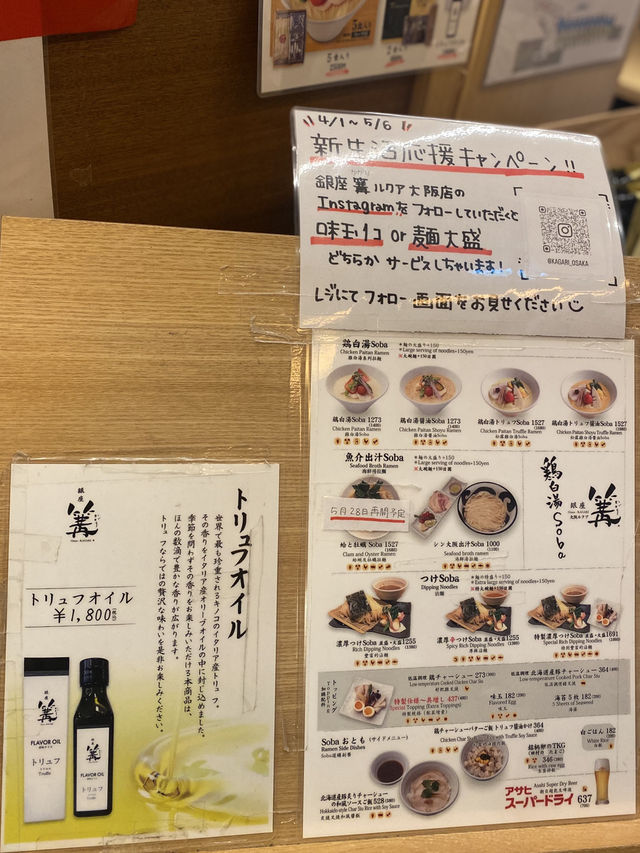 4/1〜5/6
新生活応援キャンペーン!!
銀座 篝 ルクア大阪店の
Instagramをフォローしていただくと
味玉1コ or 麺大盛
どちらか サービスしちゃいます!
レジにてフォロー画面をお見せください
@KAGARI_OSAKA
鶏白湯Soba
Chicken Paitan Ramen
*麺の大盛り+150
*Large serving of noodles+150yen
鶏白湯Soba 1273
(1400)
Chicken Paitan Ramen
鶏白湯醤油Soba 1273
(1400)
Chicken Paitan Shoyu Ramen
鶏白湯トリュフSoba 1527
(1680)
Chicken Paitan Truffle Ramen
鶏白湯トリュフ醤油Soba 1527
(1680)
Chicken Paitan Shoyu Truffle Ramen
魚介出汁Soba
Seafood Broth Ramen
*麺の大盛り+150
*Large serving of noodles+150yen
5月28日再開予定
蛤と牡蠣 Soba 1527
(1680)
Clam and Oyster Ramen
シン大阪出汁Soba 1000
(1100)
Seafood broth ramen
鶏白湯Soba
銀座
篝
大阪ルクア
つけSoba
Dipping Noodles
*麺の特盛り+150
*Extra large serving of noodles+150yen
濃厚つけSoba 並盛・大盛 1255
Rich Dipping Noodles
濃厚辛つけSoba 並盛・大盛 1255
Spicy Rich Dipping Noodles
特製濃厚つけSoba 並盛・大盛 1691
Special Rich Dipping Noodles
トッピング
低温調理 鶏チャーシュー 273
Low-temperature Cooked Chicken Char Siu
低温調理 北海道産豚チャーシュー 364
Low-temperature Cooked Pork Char Siu
特製仕様へ共増し 437
Special Topping (Extra Toppings)
味玉 182
Flavored Egg
海苔 5枚 182
5 Sheets of Seaweed
Soba おとも (サイドメニュー)
Ramen Side Dishes
鶏チャーシューバターご飯トリュフ醤油かけ 364
銘柄卵のTKG
346
Rice with raw egg
白ごはん 182
White Rice
北海道産豚炙りチャーシュー
の和風ソースご飯 528
Hokkaido-style Char Siu Rice with Soy Sauce
Asahi Super Dry Beer
アサヒ
スーパードライ 637
(700)
銀座
篝
トリュフオイル
世界で最も珍重されるキノコのイタリア産トリュフ。
その香りをイタリア産オリーブオイルの中に封じ込めました。
季節を問わずその香りをお楽しみいただける本商品は、
ほんの数滴で豊かな香りが広がります。
トリュフならではの贅沢な味わいを是非お楽しみください。
トリュフオイル
¥1,800
銀座
篝
FLAVOR OIL
トリュフ
Truffle
篝
FLAVOR OIL
トリュフ